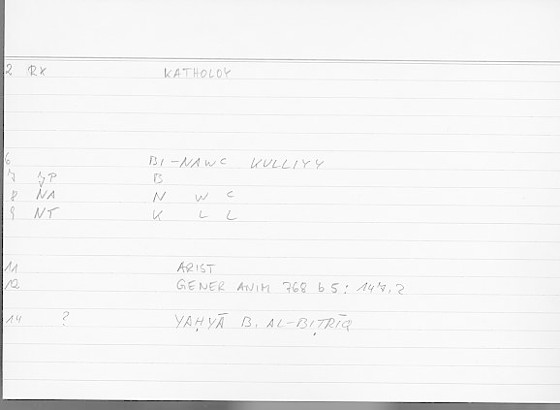 2 RX KATHOLOY
6 BI-NAWC KULLIYY
7 JP B
8 NA N W C
9 NT K L L
11 ARIST
12 GENER ANIM 768 b 5 : 147,2
14 ? YAḤYĀ B. AL-BIṬRĪQ